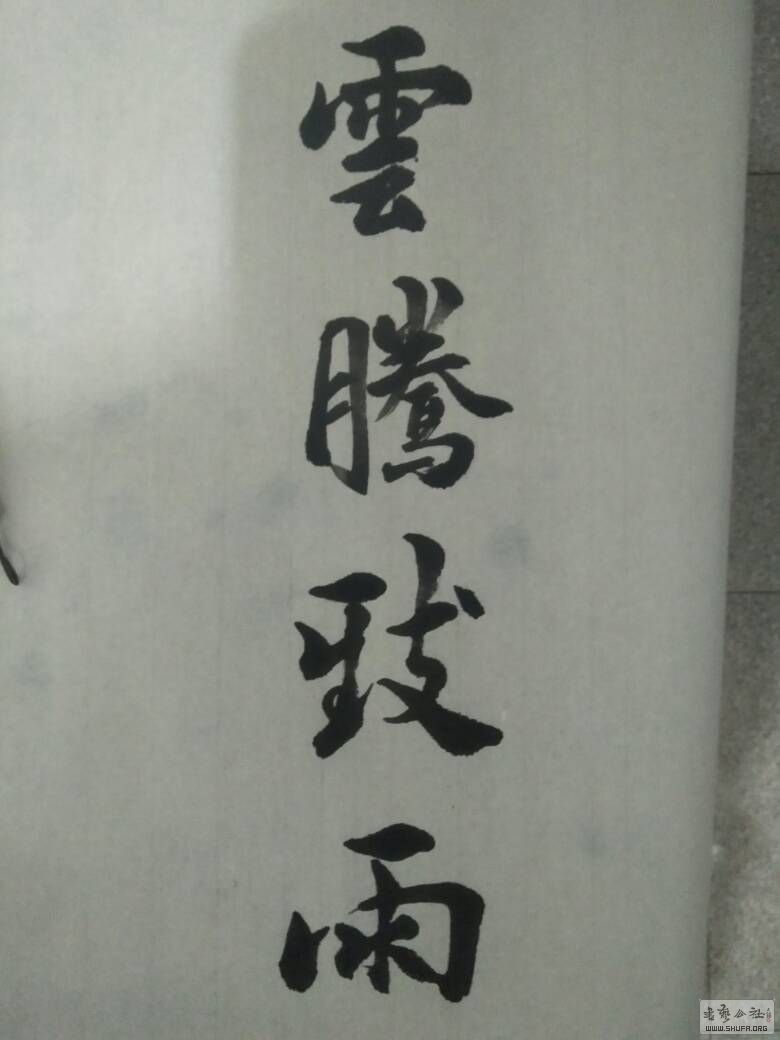 雲騰致雨
書藝公社
WWW.SHUFA.ORG